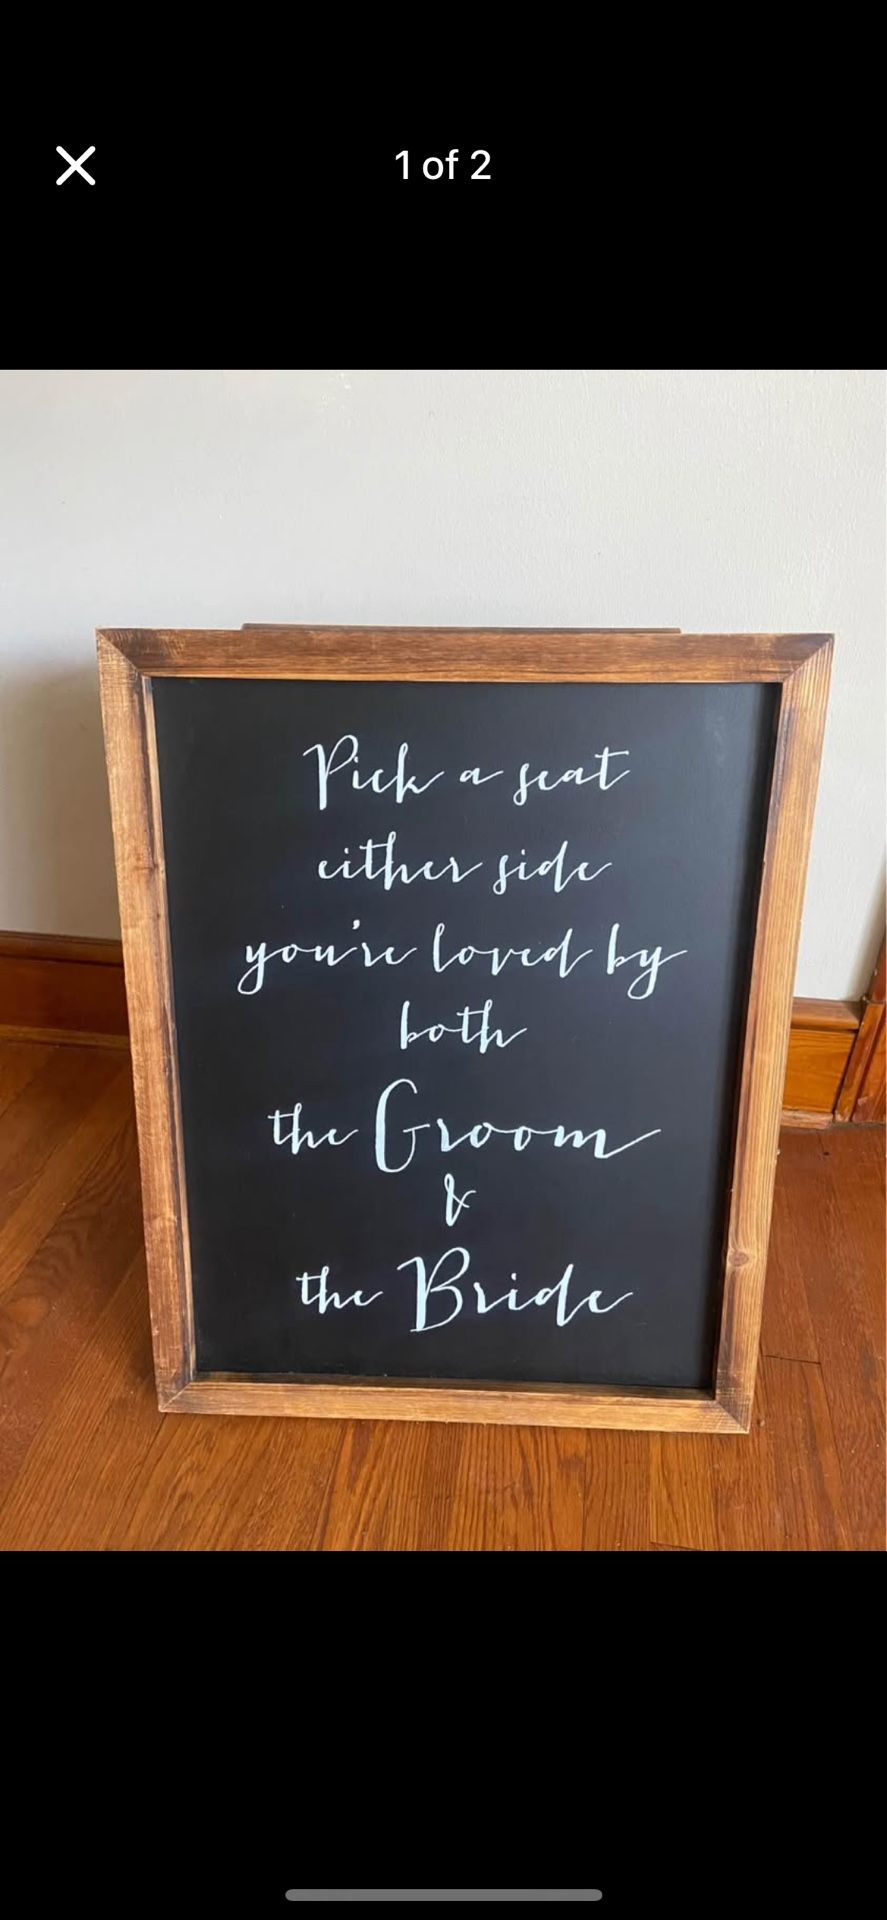 1 of 2
Pick a seat
either side
you're loved by
both
the Groom
&
the Bride